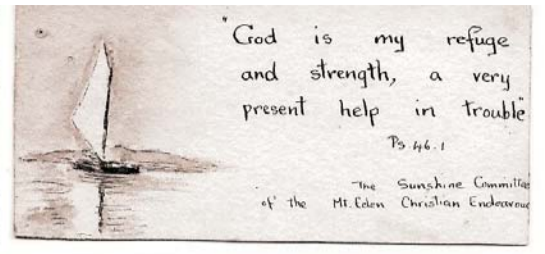 "God is my refuge
and strength, a very
present help in trouble"
Ps 46.1
The Sunshine Committee
of the Mt. Eden Christian Endeavour